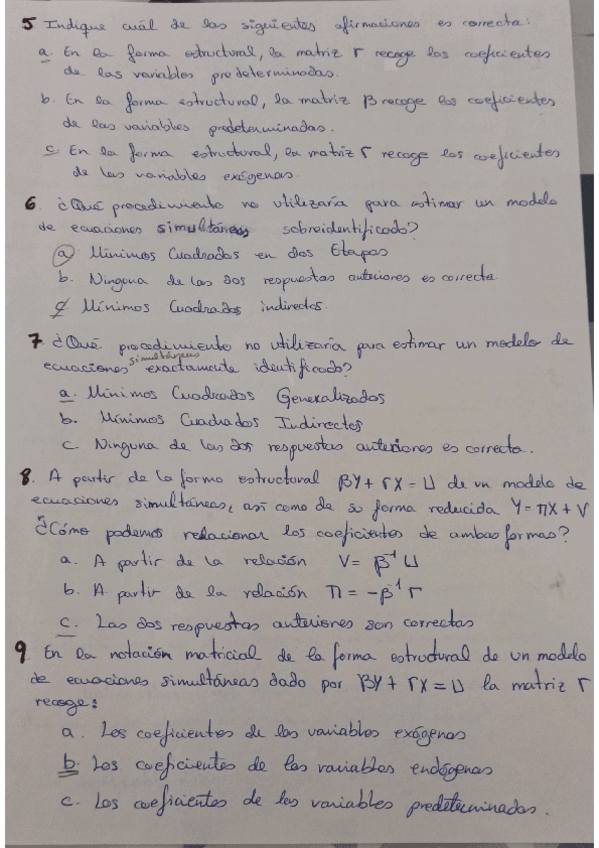 5 Indique cuál de las siguientes afirmaciones es correcta:
a. En la forma estructural, la matriz Γ recoge los coeficientes
de las variables predeterminadas.
b. En la forma estructural, la matriz β recoge los coeficientes
de las variables predeterminadas.
c. En la forma estructural, la matriz Γ recoge los coeficientes
de las variables exógenas.
6. ¿Qué procedimiento no utilizaría para estimar un modelo
de ecuaciones simultáneas sobreidentificado?
a. Mínimos Cuadrados en dos Etapas
b. Ninguna de las dos respuestas anteriores es correcta.
c. Mínimos Cuadrados indirectos.
7. ¿Qué procedimiento no utilizaría para estimar un modelo de
ecuaciones simultáneas exactamente identificado?
a. Mínimos Cuadrados Generalizados
b. Mínimos Cuadrados Indirectos
c. Ninguna de las dos respuestas anteriores es correcta.
8. A partir de la forma estructural βY + ΓX = U de un modelo de
ecuaciones simultáneas, así como de su forma reducida Y = ΠX + V
¿Cómo podemos relacionar los coeficientes de ambas formas?
a. A partir de la relación V = β⁻¹ U
b. A partir de la relación Π = -β⁻¹ Γ
c. Las dos respuestas anteriores son correctas
9. En la notación matricial de la forma estructural de un modelo
de ecuaciones simultáneas dado por βY + ΓX = U la matriz Γ
recoge:
a. Los coeficientes de las variables exógenas
b. Los coeficientes de las variables endógenas
c. Los coeficientes de las variables predeterminadas.